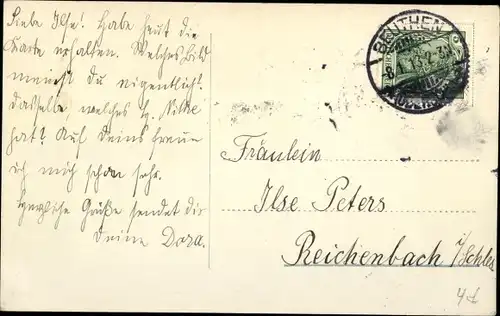 Liebe Ilse! Habe heut die
Karte erhalten. Welches Bild
meinst du eigentlich?
dasselbe, welches Nitke
hat? Auf deins freue
ich mich schon sehr.
Herzliche Grüße sendet dir
deine Dora.
BEUTHEN
13.2-3N
Fräulein
Ilse Peters
Reichenbach i/Schles